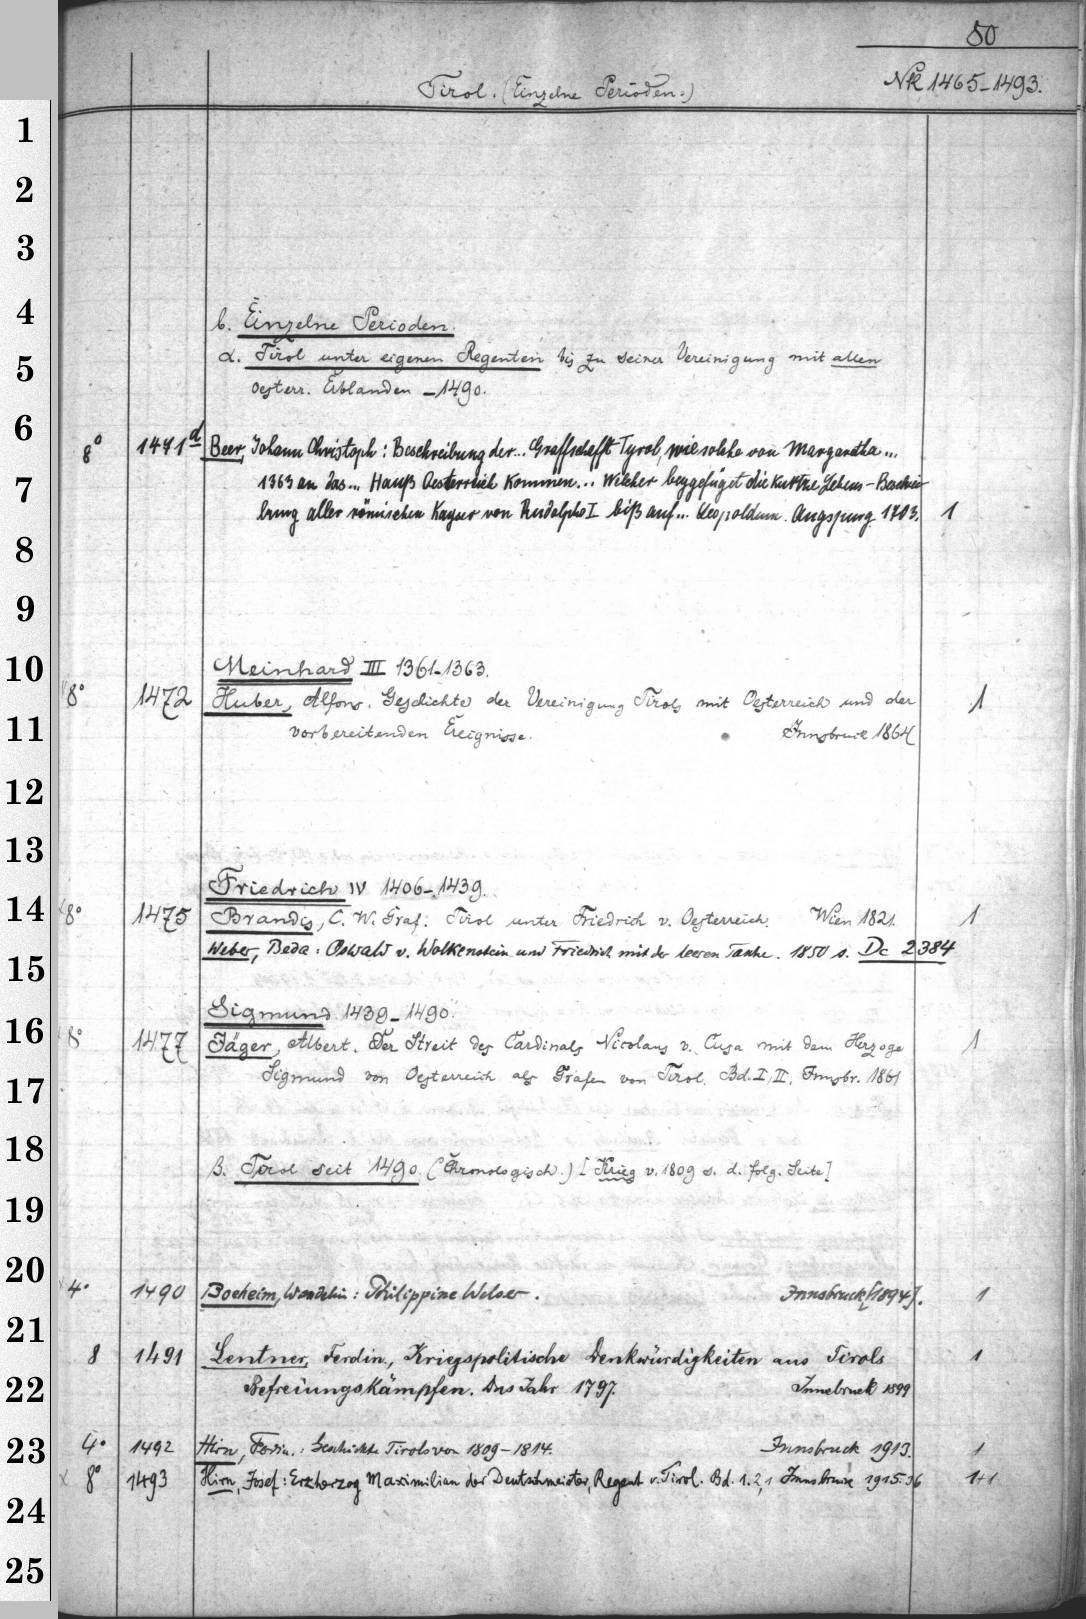 80
Tirol. (Einzelne Perioden.) Nr. 1465-1493.
b. Einzelne Perioden.
α. Tirol unter eigenen Regenten bis zu seiner Vereinigung mit allen
oesterr. Erblanden -1490.
8° 1471d Beer, Johann Christoph: Beschreibung der... Graffschafft Tyrol, wie solche von Margaretha...
1363 an das... Hauß Oesterreich kommen... Welcher beygefüget die kurtze Lebens-Beschrei-
bung aller römischen Kayser von Rudolpho I biß auf... Leopoldum. Augspurg 1703. 1
Meinhard III 1361-1363.
8° 1472 Huber, Alfons. Geschichte der Vereinigung Tirols mit Oesterreich und der 1
vorbereitenden Ereignisse. Innsbruck 1864
Friedrich IV 1406-1439.
8° 1475 Brandis, C. W. Graf: Tirol unter Friedrich v. Oesterreich. Wien 1821. 1
Weber, Beda: Oswald v. Wolkenstein und Friedrich mit der leeren Tasche. 1850 s. Dc 2384
Sigmund 1439-1490.
8° 1477 Jäger, Albert. Der Streit des Cardinals Nicolaus v. Cusa mit dem Herzoge 1
Sigmund von Oesterreich als Grafen von Tirol. Bd. I, II, Innsbr. 1861
β. Tirol seit 1490. (Chronologisch.) [Krieg v. 1809 s. d. folg. Seite]
4° 1490 Boeheim, Wendelin: Philippine Welser. Innsbruck [1894]. 1
8 1491 Lentner, Ferdin., Kriegspolitische Denkwürdigkeiten aus Tirols 1
Befreiungskämpfen. Das Jahr 1797. Innsbruck 1899
4° 1492 Hirn, Ferdin.: Geschichte Tirols von 1809-1814. Innsbruck 1913. 1
x 8° 1493 Hirn, Josef: Erzherzog Maximilian der Deutschmeister, Regent v. Tirol. Bd. 1. 2,1 Innsbruck 1915.36 1+1
1
2
3
4
5
6
7
8
9
10
11
12
13
14
15
16
17
18
19
20
21
22
23
24
25